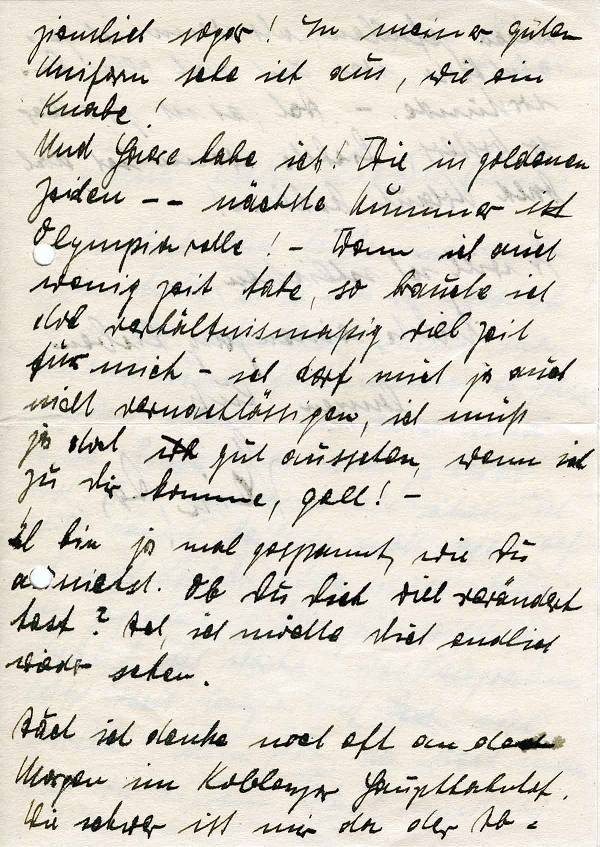 ziemlich sogar! In meiner guten
Uniform sehe ich aus, wie ein
Knabe!
Und Haare habe ich! Wie in goldenen
Zeiden -- nächste Nummer ist
Olympiarolle! - Wenn ich auch
wenig Zeit habe, so brauche ich
doch verhältnismäßig viel Zeit
für mich - ich darf mich ja auch
nicht vernachlässigen, ich muß
ja doch gut aussehen, wenn ich
zu Dir komme, gell! -
Ich bin ja mal gespannt, wie Du
aussiehst. Ob Du Dich viel verändert
hast? Ach, ich möchte Dich endlich
wieder sehen.
Auch ich denke noch oft an den
Morgen im Koblenzer Hauptbahnhof.
Wie schwer ist mir da der Ab=